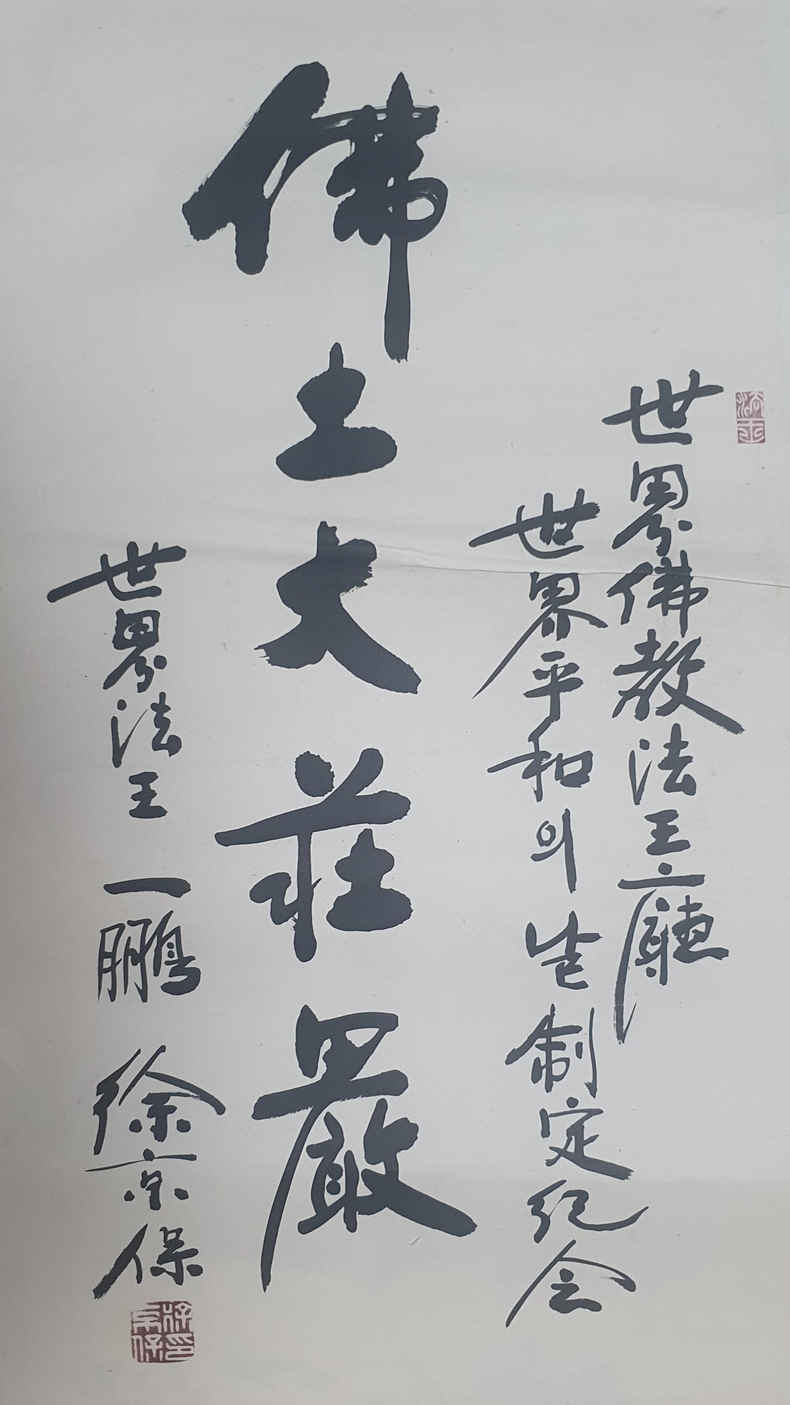 世界佛教法王廳
世界平和의 날 制定紀念
佛土大莊嚴
世界法王 一鵬 徐京保
徐印京保